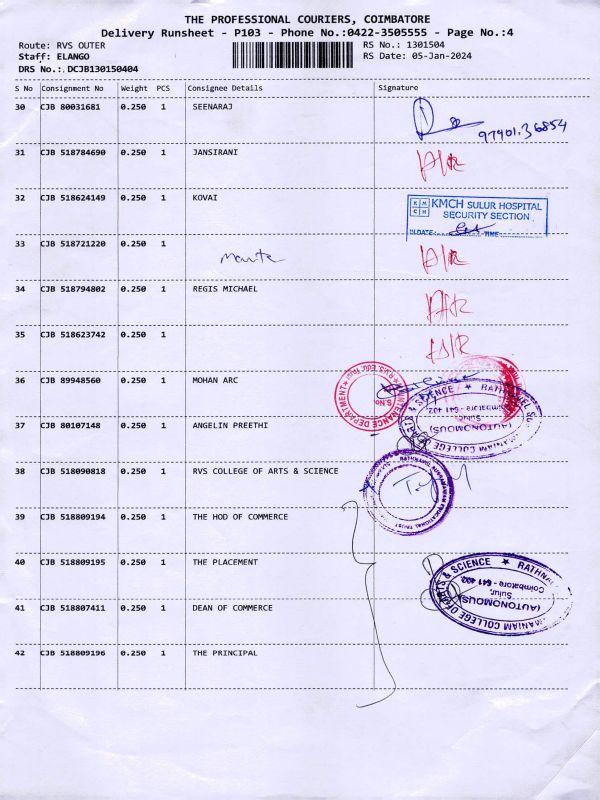 THE PROFESSIONAL COURIERS, COIMBATORE
Delivery Runsheet - P103 - Phone No.:0422-3505555 - Page No.:4
Route: RVS OUTER
RS No.: 1301504
Staff: ELANGO
RS Date: 05-Jan-2024
DRS No.:.DCJB130150404
S No Consignment No Weight PCS Consignee Details Signature
30 CJB 80031681 0.250 1 SEENARAJ
97401.36854
31 CJB 518784690 0.250 1 JANSIRANI
32 CJB 518624149 0.250 1 KOVAI
KMCH SULUR HOSPITAL
SECURITY SECTION
IN.DATE: TIME
33 CJB 518721220 0.250 1
34 CJB 518794802 0.250 1 REGIS MICHAEL
35 CJB 518623742 0.250 1
36 CJB 89948560 0.250 1 MOHAN ARC
R.V.S. Edu. Trust
S.No
DEPARTMENT
37 CJB 80107148 0.250 1 ANGELIN PREETHI
ARTS & SCIENCE ★ RATHNAVEL
MANIAM COLLEGE OF
(AUTONOMOUS)
Sulur,
Coimbatore - 641 402
38 CJB 518090818 0.250 1 RVS COLLEGE OF ARTS & SCIENCE
EDUCATIONAL TRUST
39 CJB 518809194 0.250 1 THE HOD OF COMMERCE
40 CJB 518809195 0.250 1 THE PLACEMENT
ARTS & SCIENCE ★ RATHNA
MANIAM COLLEGE OF
(AUTONOMOUS)
Sulur,
Coimbatore - 641 402
41 CJB 518807411 0.250 1 DEAN OF COMMERCE
42 CJB 518809196 0.250 1 THE PRINCIPAL